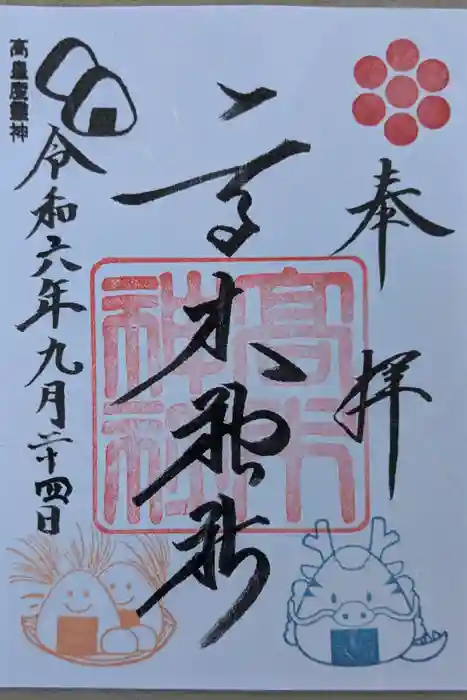 奉拝
高木神社
高木
神社
高皇産靈神
令和六年九月二十四日